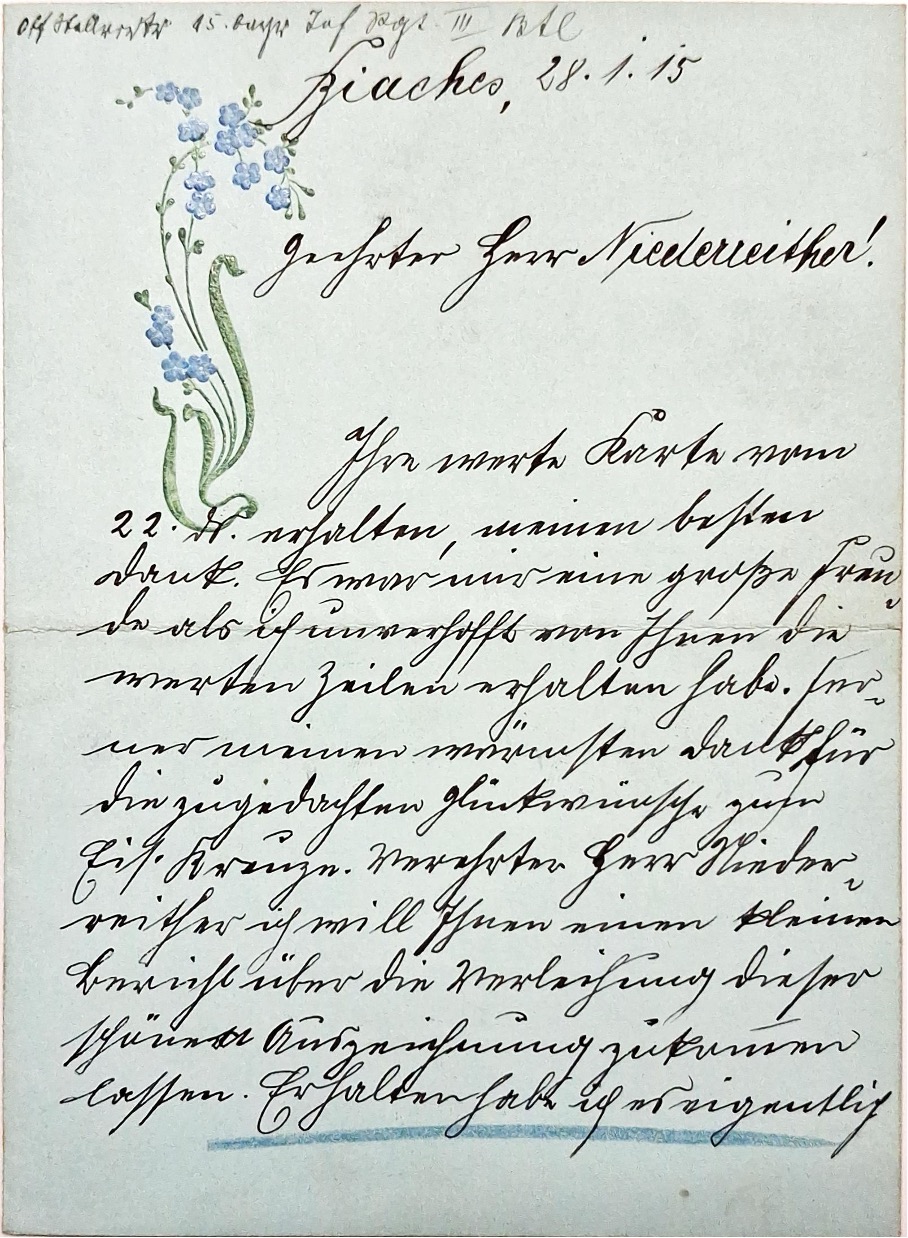 Off Stellvertr 15. bayr Inf Rgt. III Btl
Biaches, 28.1.15
Geehrter Herr Niederreither!
Ihre werte Karte vom
22. ds. erhalten, meinen besten
Dank. Es war mir eine große Freu-
de als ich unverhofft von Ihnen die
werten Zeilen erhalten habe. Fer-
ner meinen wärmsten Dank für
die zugedachten Glückwünsche zum
Eis. Kreuze. Verehrter Herr Nieder-
reither ich will Ihnen einen kleinen
Bericht über die Verleihung dieser
schönen Auszeichnung zukom̅en
lassen. Erhalten habe ich es eigentlich